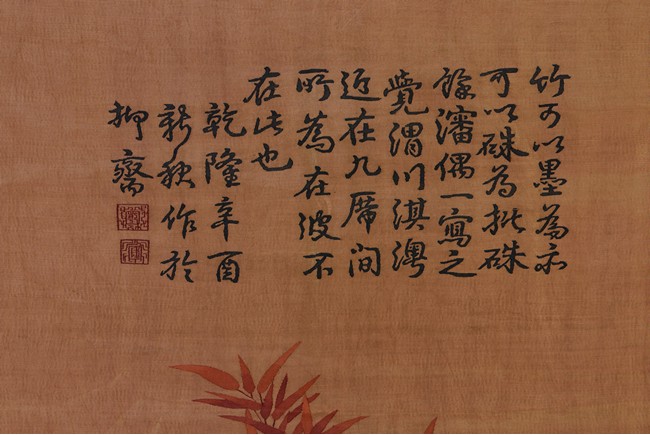 竹可以墨為亦
可以硃為批硃
餘瀋偶一寫之
覺渭川淇澳
近在九席間
所為在彼不
在此也
乾隆辛酉
新秋作於
抑齋